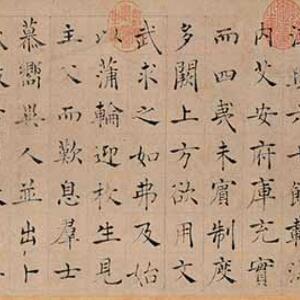 漢興六十餘載海
內艾安府庫充實
而四夷未賓制度
多闕上方欲用文
武求之如弗及始
以蒲輪迎枚生見
主父而歎息羣士
慕嚮異人並出卜